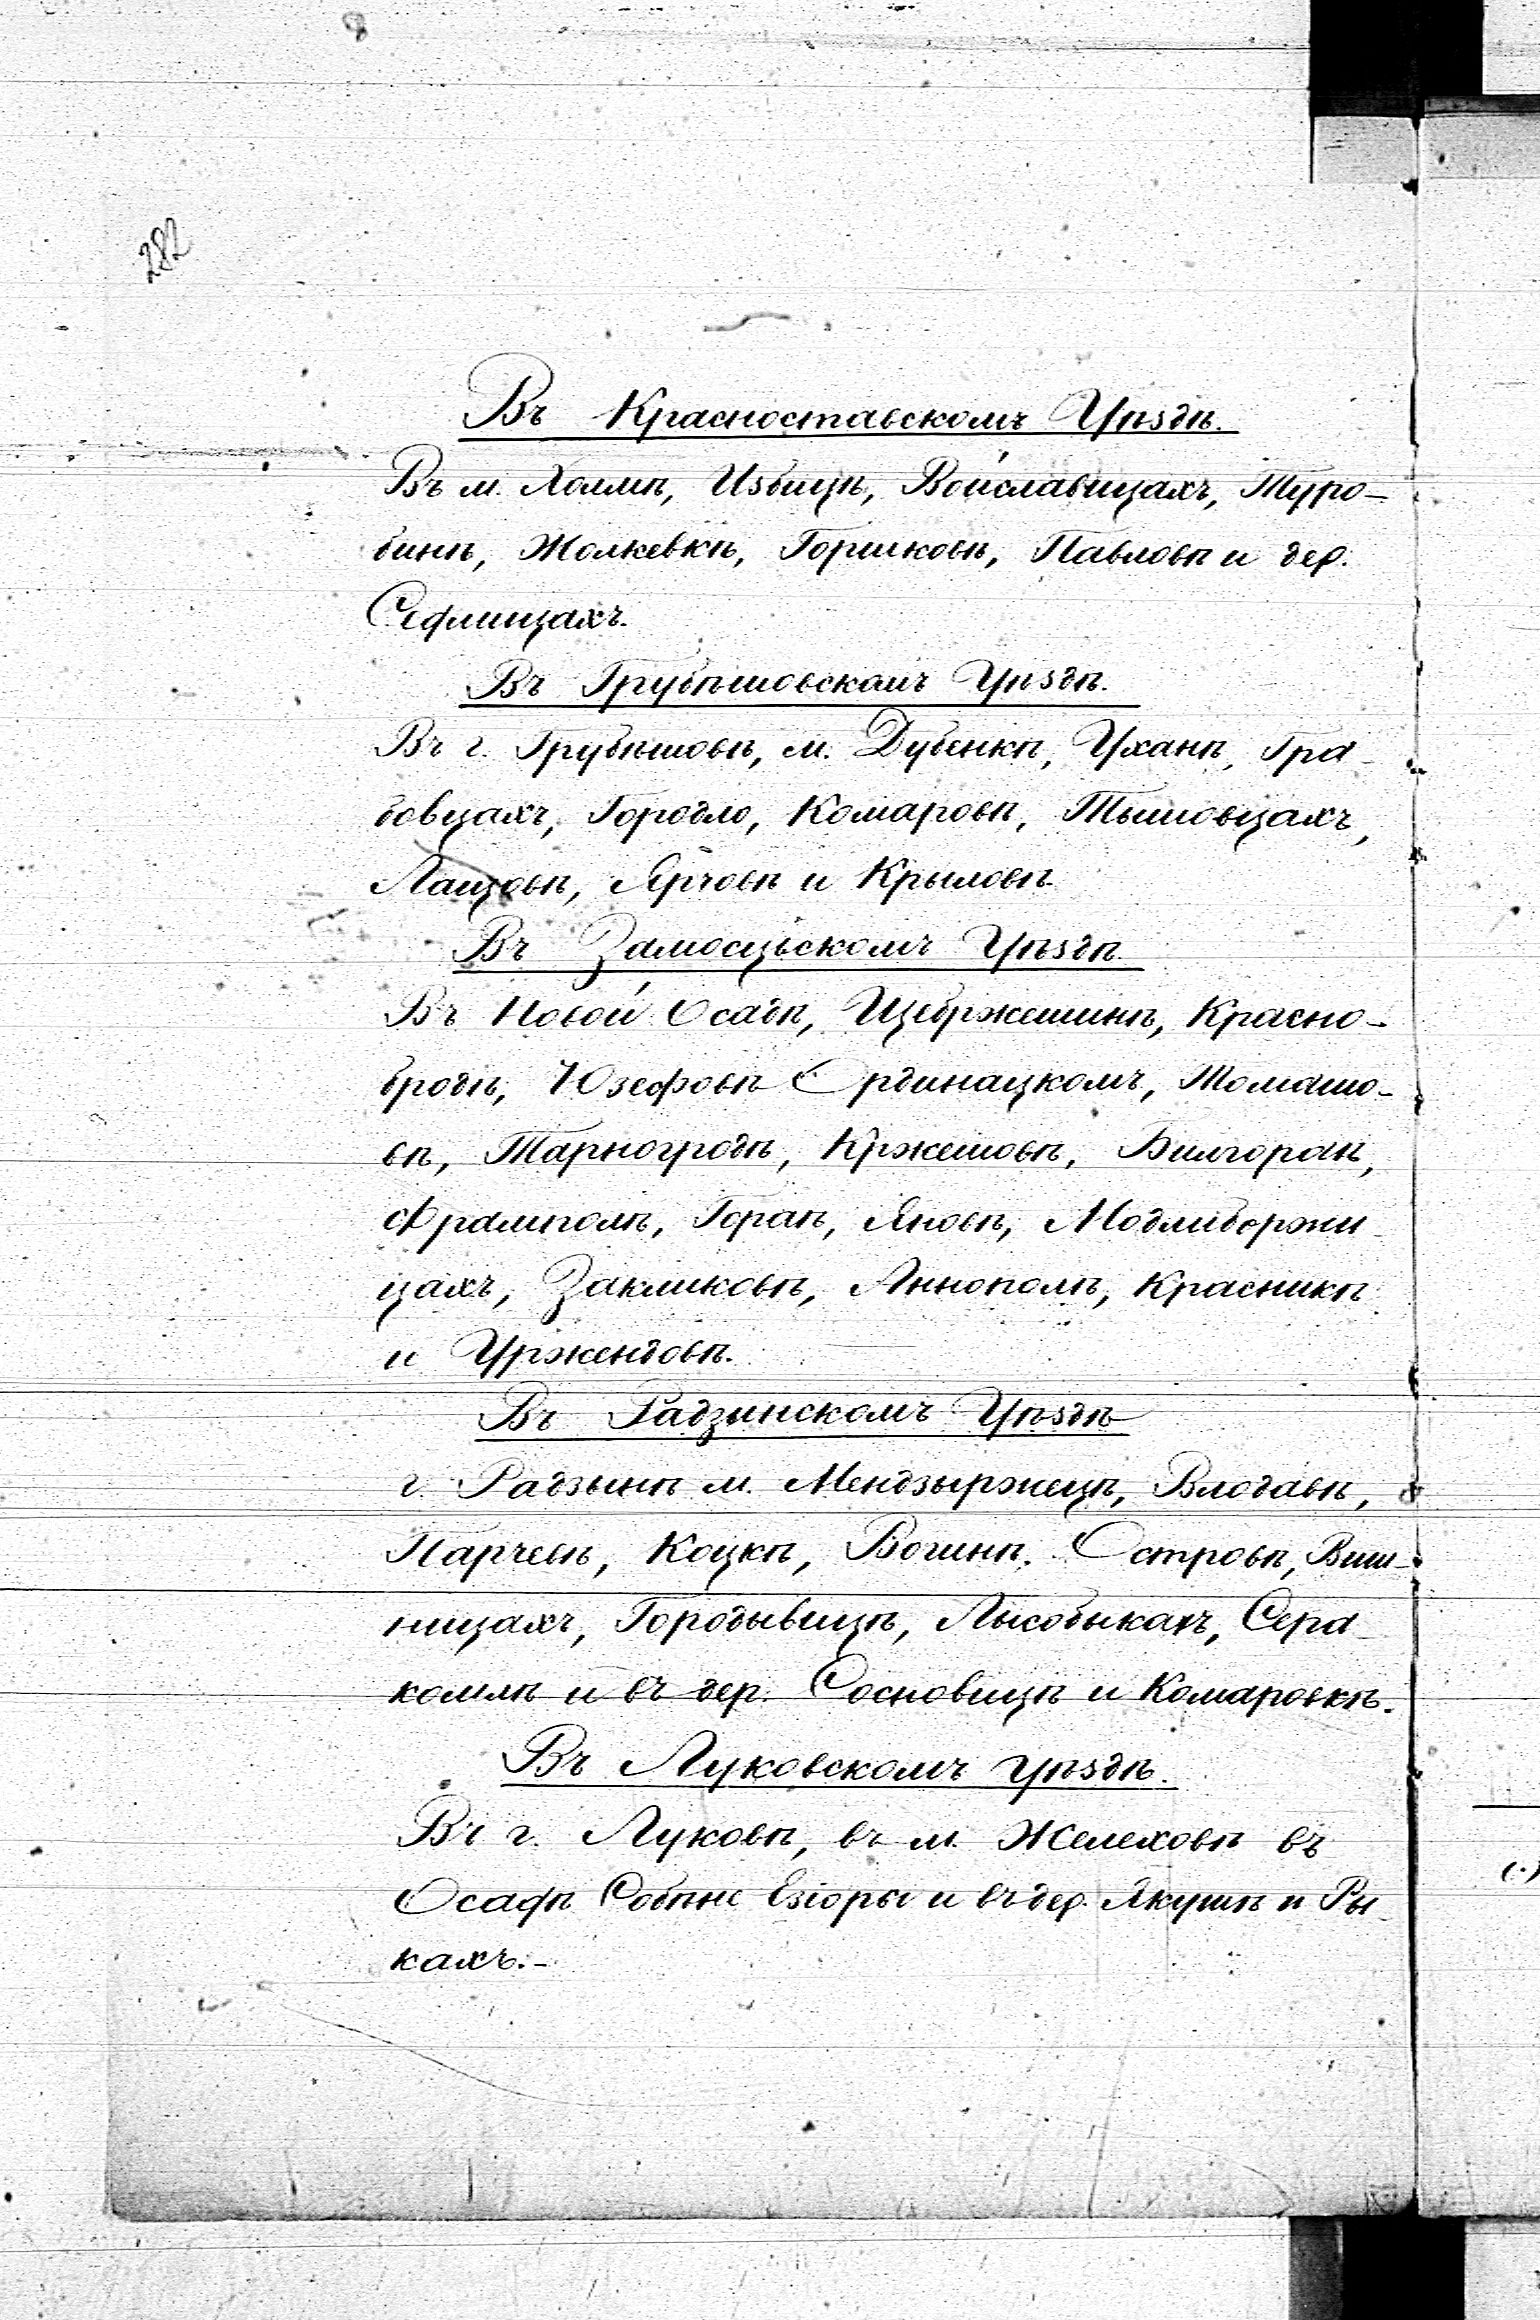 282
Въ Красноставскомъ Уѣздѣ.
Въ м. Холмѣ, Избицѣ, Войславицахъ, Туро-
бинѣ, Жолкевкѣ, Горшковѣ, Павловѣ и дер.
Селищахъ.
Въ Грубѣшовскомъ Уѣздѣ.
Въ г. Грубѣшовѣ, м. Дубенкѣ, Уханѣ, Гра-
бовцахъ, Городло, Комаровѣ, Тышовцахъ,
Лащовѣ, Ярчовѣ и Крыловѣ.
Въ Замосцьскомъ Уѣздѣ.
Въ Новой Осадѣ, Щебржешинѣ, Красно-
бродѣ, Юзефовѣ Ординацкомъ, Томашо-
вѣ, Тарногродѣ, Кржешовѣ, Билгораѣ,
Фрамполѣ, Гораѣ, Яновѣ, Модлиборжи-
цахъ, Закликовѣ, Аннополѣ, Красникѣ
и Уржендовѣ.
Въ Радзинскомъ Уѣздѣ
г. Радзынѣ м. Мендзыржецѣ, Влодавѣ,
Парчевѣ, Коцкѣ, Вогинѣ. Островѣ, Виш-
ницахъ, Городывицѣ, Лысобыкахъ, Сера-
комлѣ и въ дер. Сосновицѣ и Комаровкѣ.
Въ Луковскомъ уѣздѣ.
Въ г. Луковѣ, въ м. Желеховѣ въ
Осадѣ Собѣне Езіоры и въ дер. Якушѣ и Ры-
кахъ.-